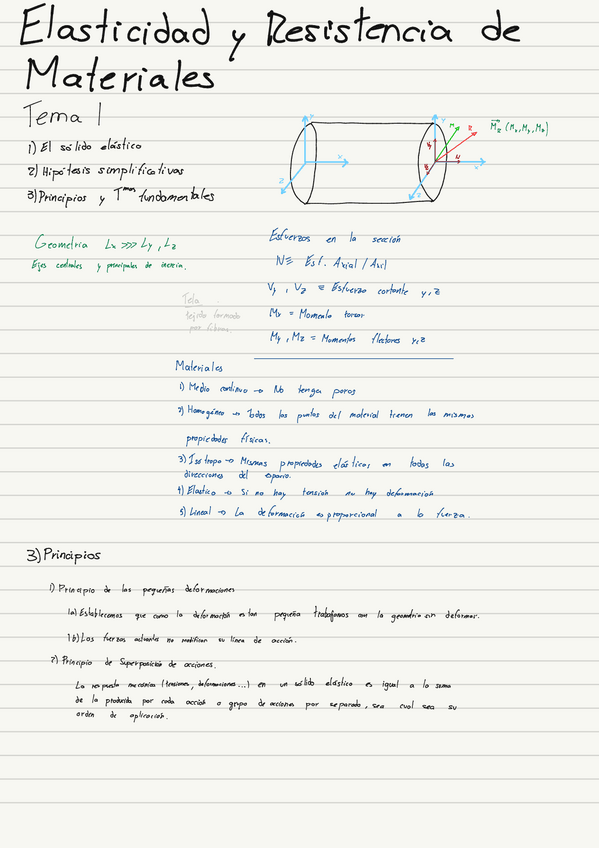 Elasticidad y Resistencia de
Materiales
Tema 1
1) El sólido elástico
2) Hipótesis simplificativas
3) Principios y T^mas fundamentales
Y
X
Z
Y
X
Z
M
R
N
Vy
Vz
M_R (Mx, My, Mz)
Geometria Lx >>> Ly, Lz
Ejes centrales y principales de inercia.
Esfuerzos en la sección
N ≡ Esf. Axial / Axil
Vy, Vz ≡ Esfuerzo cortante y, z
Mx = Momento torsor
My, Mz = Momentos flectores y, z
Tela
tejido formado
por fibras.
Materiales
1) Medio continuo → No tenga poros
2) Homogéneo → Todos los puntos del material tienen las mismas
propiedades físicas.
3) Isotropo → Mismas propiedades elásticas en todas las
direcciones del espacio.
4) Elastico → Si no hay tensión no hay deformación
5) Lineal → La deformación es proporcional a la fuerza.
3) Principios
1) Principio de las pequeñas deformaciones
1a) Establecemos que como la deformación es tan pequeña trabajamos con la geometria sin deformar.
1b) Las fuerzas actuantes no modifican su linea de acción.
2) Principio de Superposición de acciones.
La respuesta mecánica (tensiones, deformaciones...) en un sólido elástico es igual a la suma
de la producida por cada acción o grupo de acciones por separado, sea cual sea su
orden de aplicación.